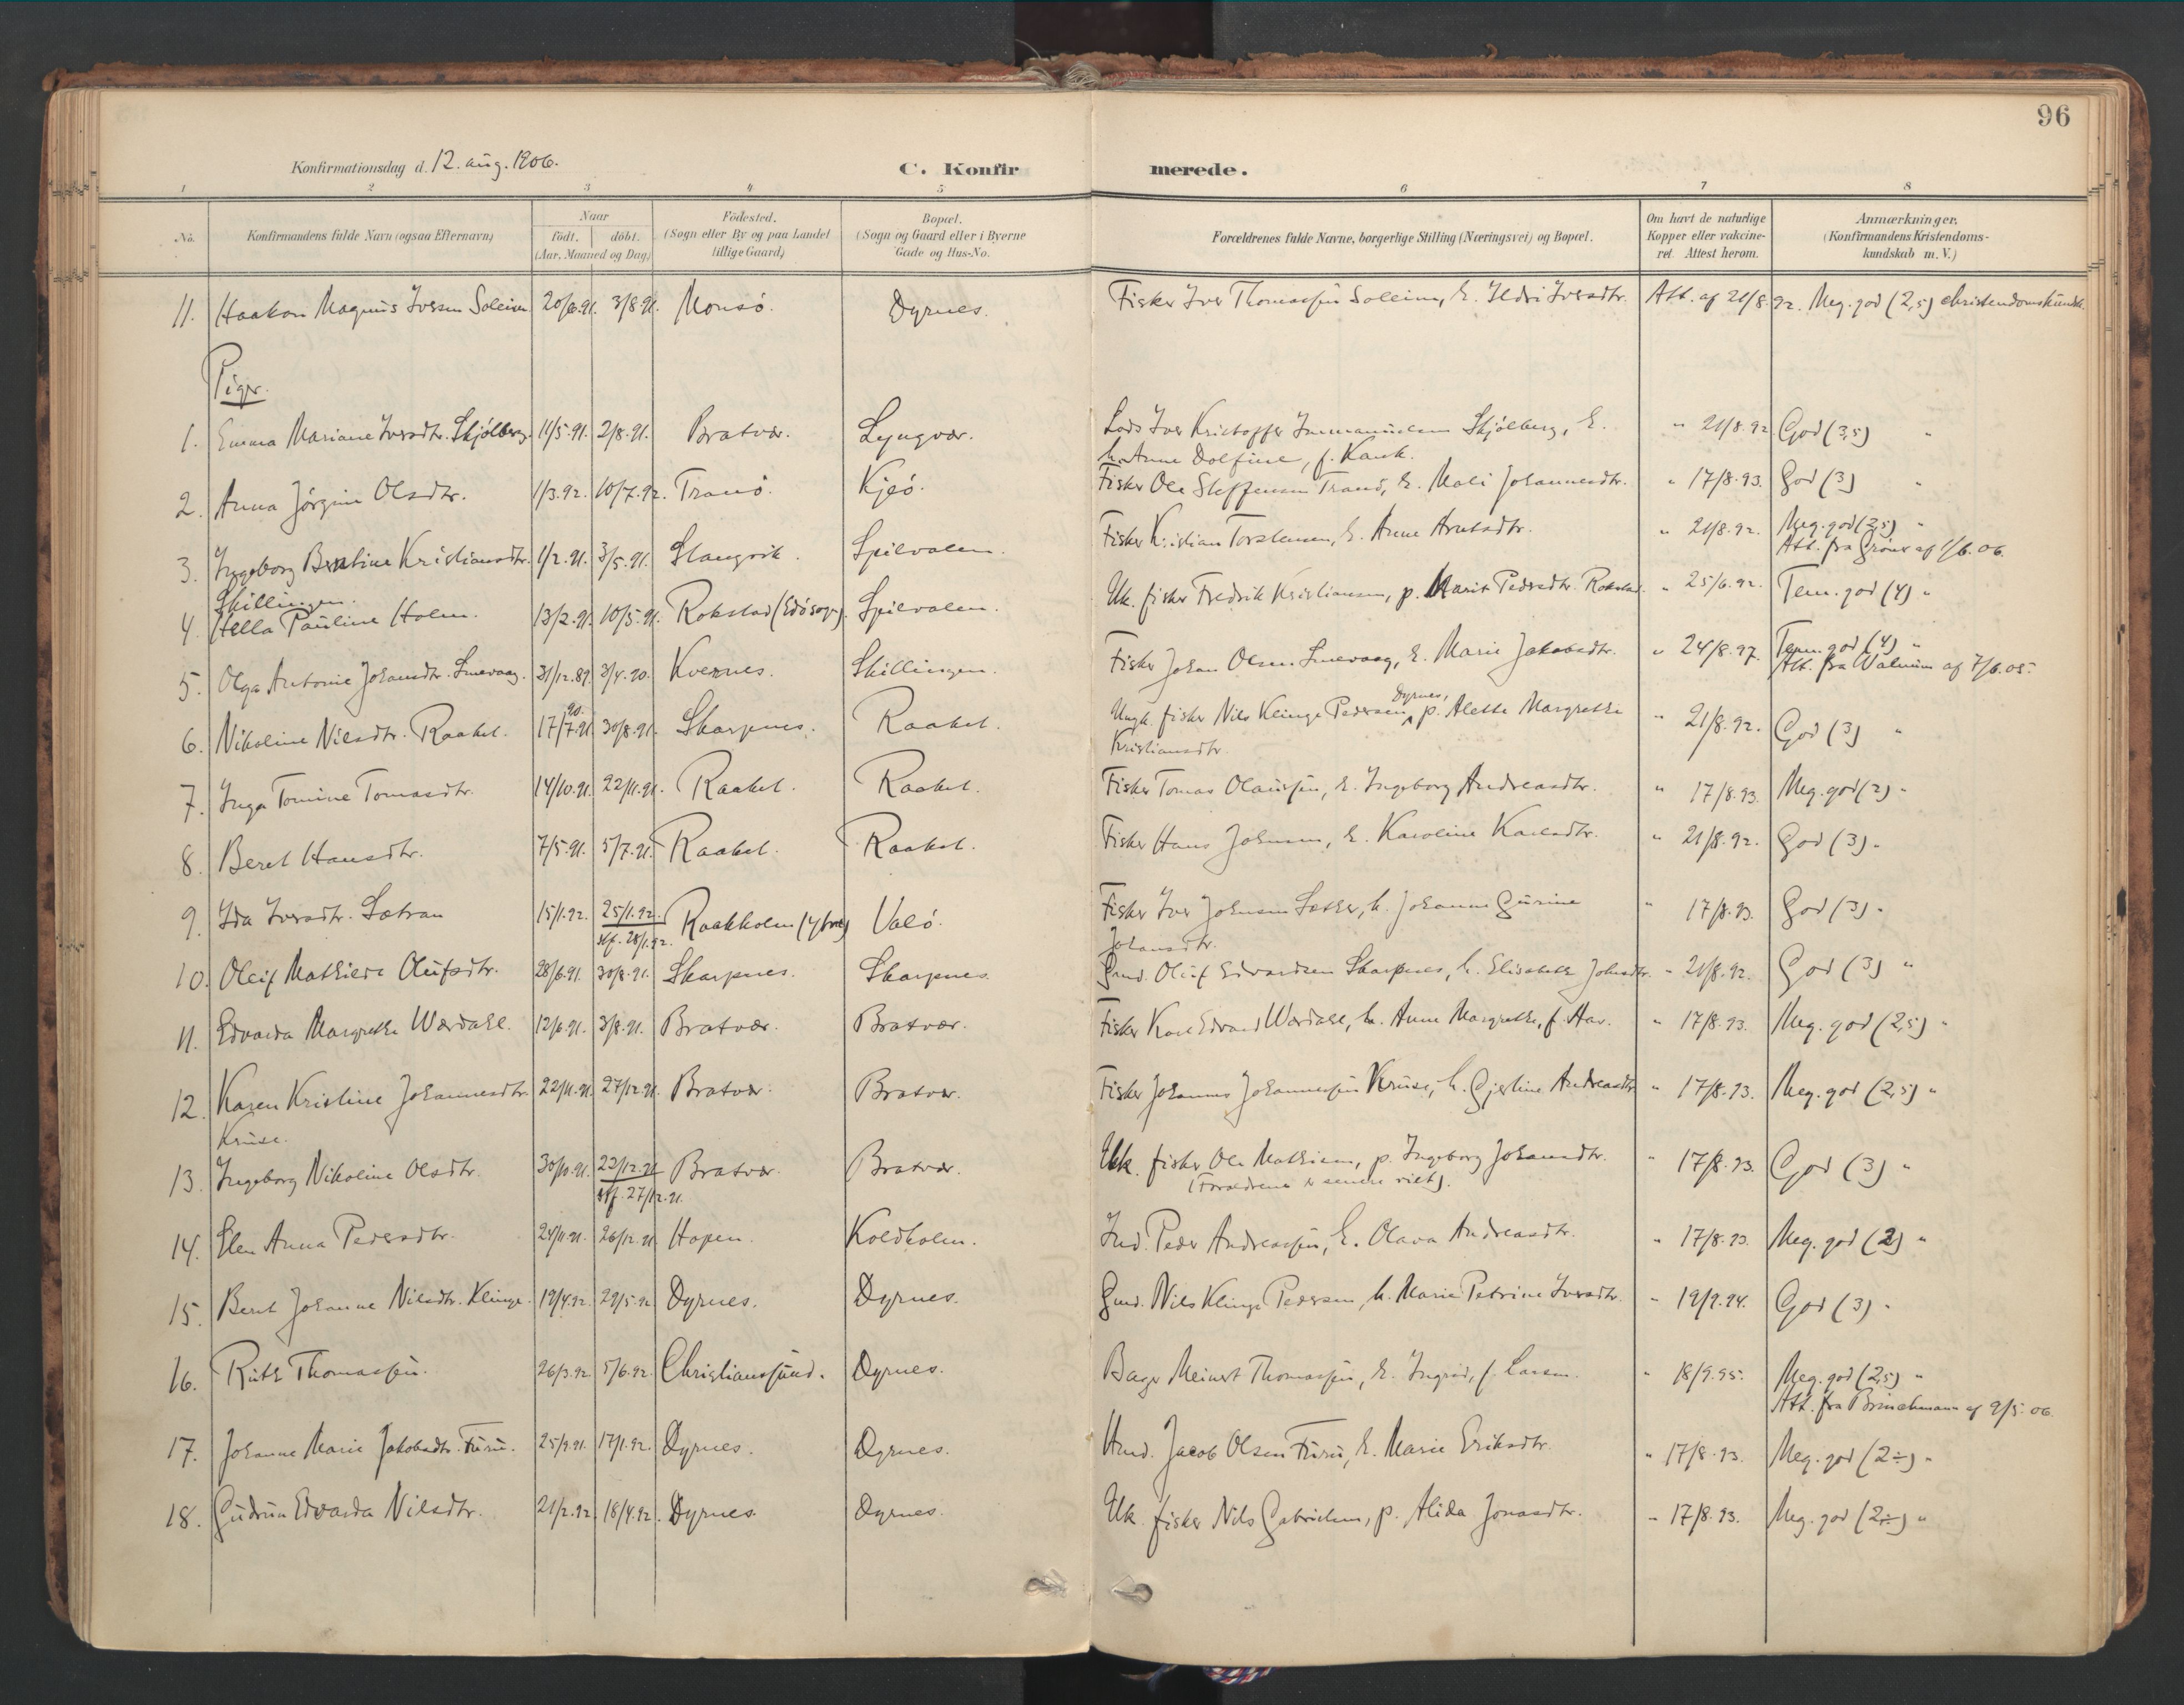 96
Konfirmationsdag d. 12. aug. 1906.
C. Konfirmerede.
1 2 3 4 5 6 7 8
No.
Konfirmandens fulde Navn (ogsaa Efternavn)
Naar
födt. döbt.
(Aar, Maaned og Dag)
Födested.
(Sogn eller By og paa Landet
tillige Gaard)
Bopæl.
(Sogn og Gaard eller i Byerne
Gade og Hus-No.
Forældrenes fulde Navne, borgerlige Stilling (Næringsvei) og Bopæl.
Om havt de naturlige
Kopper eller vakcine-
ret. Attest herom.
Anmærkninger.
(Konfirmandens Kristendoms-
kundskab m. V.)
11. Haakon Magnus Iversen Soleim 20/6.91. 3/8.91. Monsö. Dyrnes. Fisker Iver Thomassen Soleim, h. Ildri Iversdtr. Att. af 21/8.92. Meg. god (2,5) christendomskundsk.
Piger.
1. Emma Mariane Iversdtr. Skjölberg. 11/5.91. 2/8.91. Bratvær. Lyngvær. Lods Iver Kristoffer Immanuelsen Skjölberg, h. " 21/8.92. God (3,5) "
h. Anne Dolfine, f. Kank.
2. Anna Jörgine Olsdtr. 1/3.92. 10/7.92. Tranö. Kjeö. Fisker Ole Steffensen Tranö, h. Mali Johannesdtr. " 17/8.93. God (3) "
3. Ingeborg Berntine Kristiansdtr. 1/2.91. 3/5.91. Stangvik. Spilvalen. Fisker Kristian Torstensen, h. Anne Arntsdtr. " 21/8.92. Meg. god (2,5) "
Skillingen. Att. fra Grönes af 1/6.06.
4. Hella Pauline Holm. 13/2.91. 10/5.91. Rokstad (Edösogn). Spilvalen. Uk. fisker Fredrik Kristiansen, p. Marit Pedersdtr. Rokstad. " 25/6.92. Tem. god (4) "
5. Olga Antonie Johansdtr. Smevaag. 31/12.89. 3/4.90. Kvernes. Skillingen. Fisker Johan Olsen Smevaag, h. Marie Jakobsdtr. " 24/8.97. Tem. god (4) "
Att. fra Walnum af 7/6.05.
6. Nikoline Nilsdtr. Raaket. 17/7.91. 90. 30/8.91. Skarpnes. Raaket. Ungk. fisker Nils Klinge Pedersen, Dyrnes, p. Alette Margrethe " 21/8.92. God (3) "
Kristiansdtr.
7. Inga Tomine Tomasdtr. 14/10.91. 22/11.91. Raaket. Raaket. Fisker Tomas Olaussen, h. Ingeborg Andreasdtr. " 17/8.93. Meg. god (2) "
8. Beret Hansdtr. 7/5.91. 5/7.91. Raaket. Raaket. Fisker Hans Johnsen, h. Karoline Karlsdtr. " 21/8.92. God (3) "
9. Ida Iversdtr. Sætran 15/1.92. 25/1.92. Raakholm (Ytre) Valö. Fisker Iver Johnsen Sæther, h. Johanna Gurine " 17/8.93. God (3) "
stf. 28/1.92. Johansdtr.
10. Oleif Mathilde Olufsdtr. 28/6.91. 30/8.91. Skarpnes. Skarpnes. Gmd. Oluf Edvardsen Skarpnes, h. Elisabeth Johnsdtr. " 21/8.92. God (3) "
11. Edvarda Margrethe Wærdahl. 12/6.91. 3/8.91. Bratvær. Bratvær. Fisker Karl Edvard Wærdahl, h. Anne Margrethe, f. Aar. " 17/8.93. Meg. god (2,5) "
12. Karen Kristine Johannesdtr. 22/11.91. 27/12.91. Bratvær. Bratvær. Fisker Johannes Johannessen Kruse, h. Gjertine Andreasdtr. " 17/8.93. Meg. god (2,5) "
Kruse.
13. Ingeborg Nikoline Olsdtr. 30/10.91. 22/12.91 Bratvær Bratvær. Uk. fisker Ole Mathisen, p. Ingeborg Johansdtr. " 17/8.93. God (3) "
stf. 27/12.91. (Forældrene er senere viet).
14. Elen Anna Pedersdtr. 24/11.91. 26/12.91. Hopen. Koldholm. Ind. Peder Andreassen, h. Olava Andreasdtr. " 17/8.93. Meg. god (2) "
15. Beret Johanne Nilsdtr. Klinge. 19/4.92. 29/5.92 Dyrnes. Dyrnes. Gmd. Nils Klinge Pedersen, h. Marie Petrine Iversdtr. " 19/9.94. God (3) "
16. Ruth Thomassen. 26/3.92 5/6.92. Christianssund. Dyrnes. Bager Meinert Thomassen, h. Ingrid, f. Larsen. " 18/9.95. Meg. god (2,5) "
Att. fra Brinchmann af 9/5.06.
17. Johanne Marie Jakobsdtr. Furu. 25/9.91. 17/1.92. Dyrnes. Dyrnes. Hmd. Jacob Olsen Furu, h. Marie Eriksdtr. " 17/8.93. Meg. god (2÷) "
18. Gudrun Edvarda Nilsdtr. 21/2.92. 18/4.92. Dyrnes. Dyrnes. Uk. fisker Nils Gabrielsen, p. Alida Jonasdtr. " 17/8.93. Meg. god (2÷) "